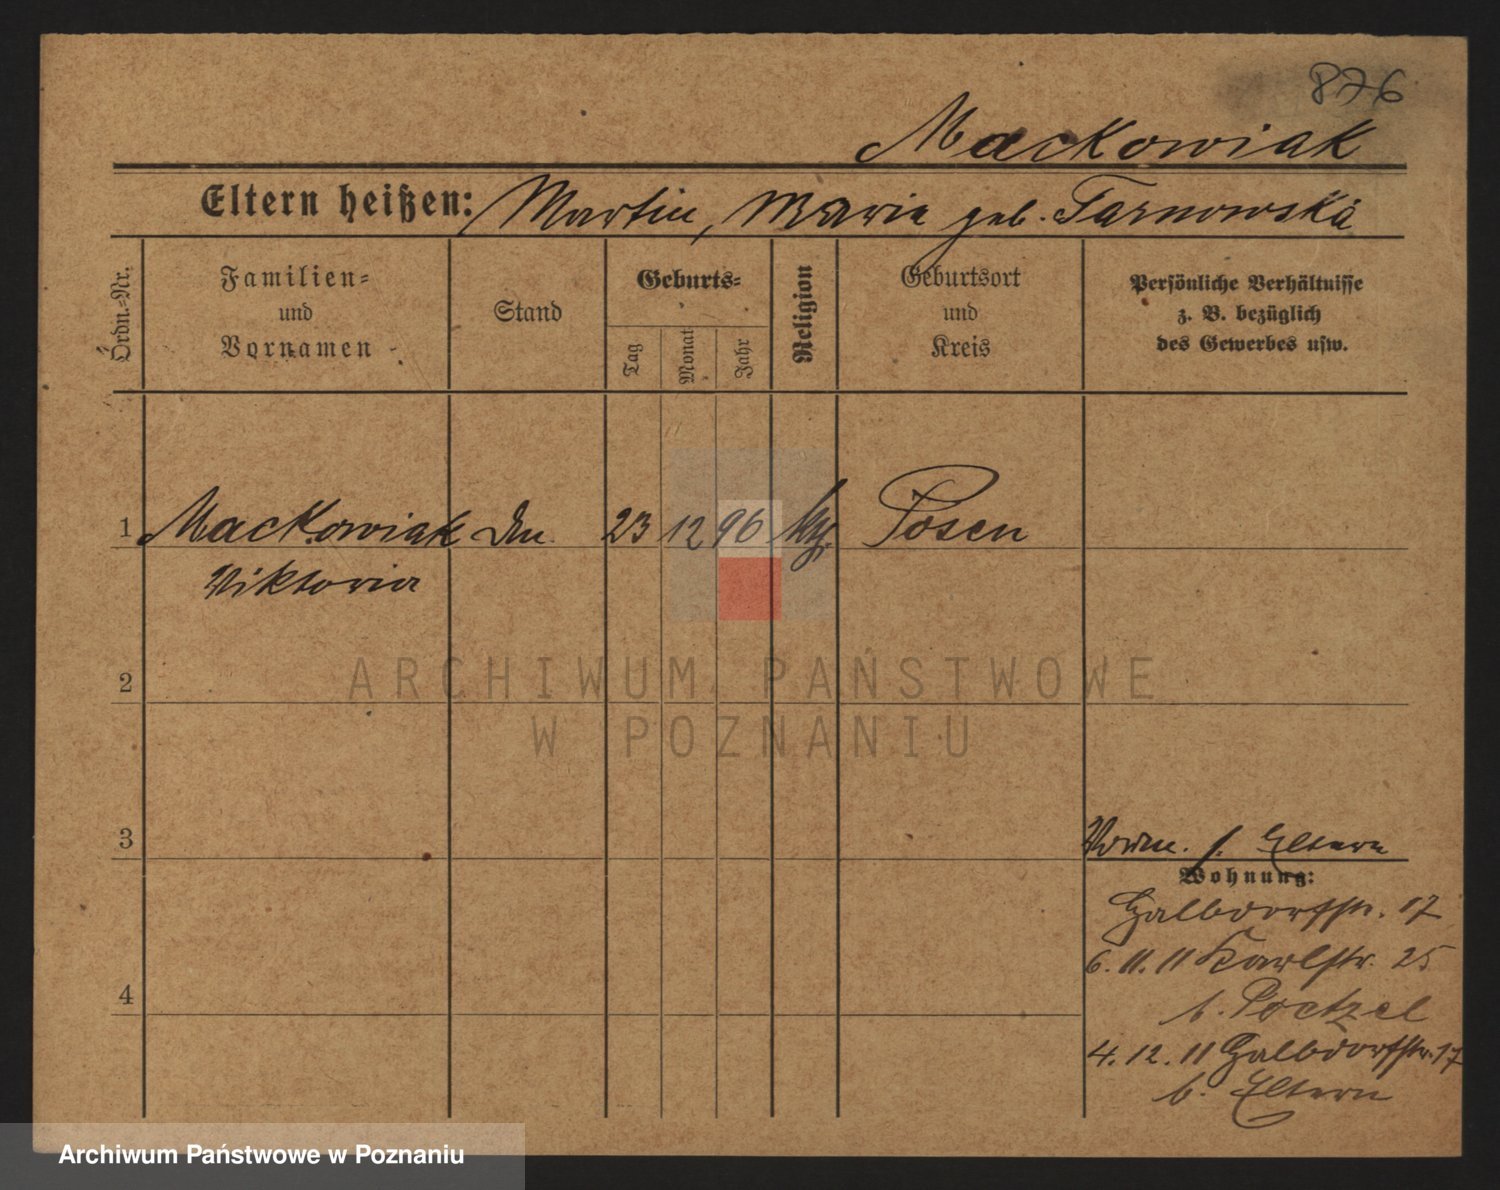 876
Mackowiak
Eltern heißen: Martin, Marie geb. Tarnowska
Ordn.-Nr.
Familien- und Vornamen
Stand
Geburts-
Tag
Monat
Jahr
Religion
Geburtsort und Kreis
Persönliche Verhältnisse z. B. bezüglich des Gewerbes usw.
1 Mackowiak 23 12 96 kth. Posen
Viktoria
2
3
4
Vorm. s. Eltern
Wohnung:
Halbdorfstr. 17
6. 11. 11 Karlstr. 25
b. Poetzel
4. 12. 11 Halbdorfstr. 17
b. Eltern
ARCHIWUM PAŃSTWOWE
W POZNANIU
Archiwum Państwowe w Poznaniu